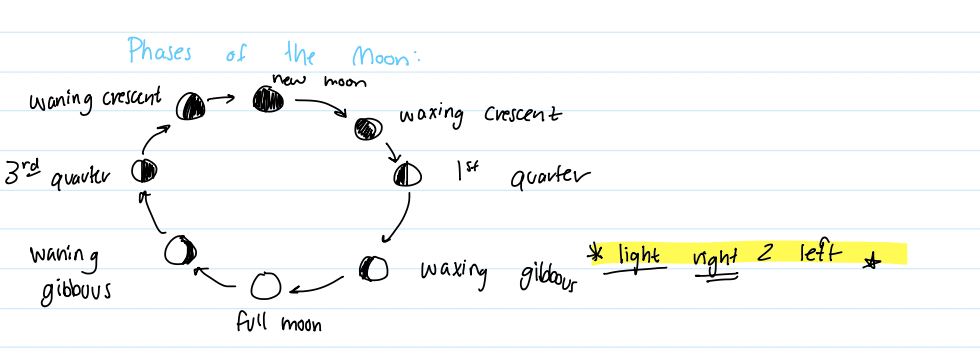 Phases of the Moon:
new moon
waning crescent
waxing crescent
3rd quarter
1st quarter
waning
gibbous
waxing gibbous
* light right 2 left ★
full moon